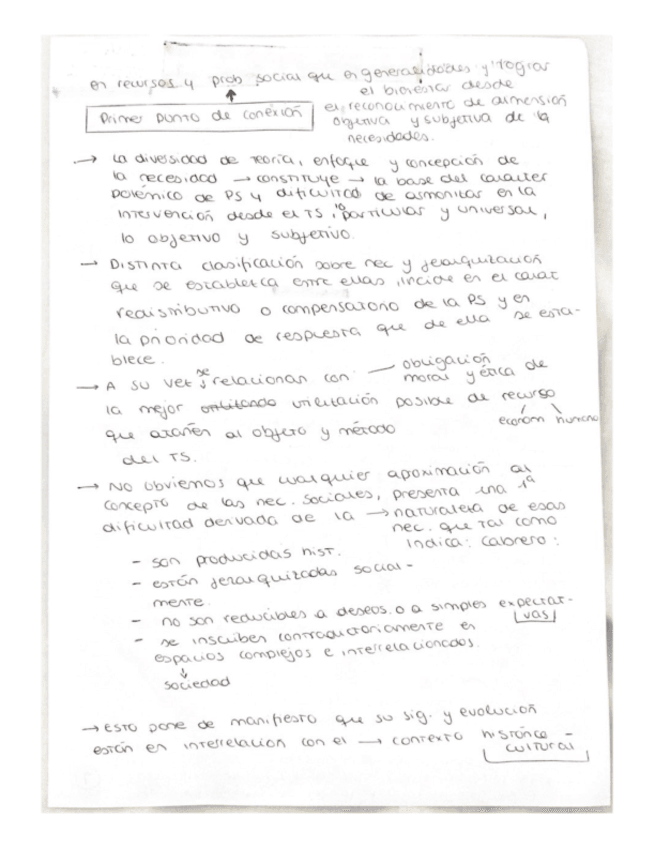 en recursos y prob social que en generalidades y lograr
el bienestar desde
Primer punto de conexión
el reconocimiento de dimensión
objetiva y subjetiva de la
necesidades.
→ La diversidad de teoría, enfoque y concepción de
la necesidad → constituye → la base del carácter
polémico de PS y dificultad de armonizar en la
intervención desde el TS, lo particular y universal,
lo objetivo y subjetivo.
→ Distinta clasificación sobre nec y jerarquización
que se establezca entre ellas, incide en el carat
redistributivo o compensatorio de la PS y en
la prioridad de respuesta que de ella se esta-
blece.
→ A su vez se relacionan con — obligación
moral y ética de
la mejor utilización posible de recurso
económ humano
que atañen al objeto y método
del TS.
→ No obviemos que cualquier aproximación al
concepto de las nec. sociales, presenta una 1ª
dificultad derivada de la → naturaleza de esas
nec. que tal como
indica: Cabrero:
- son producidas hist.
- están jerarquizadas social-
mente.
- no son reducibles a deseos o a simples expectat-
vas
- se inscriben contradictoriamente en
espacios complejos e interrelacionados.
↓
sociedad
→ Esto pone de manifiesto que su sig. y evolución
están en interrelación con el → contexto histórico -
cultural